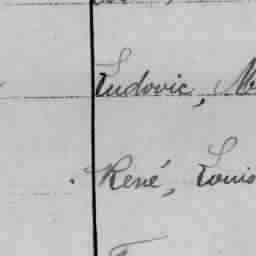 Ludovic,
René, Louis